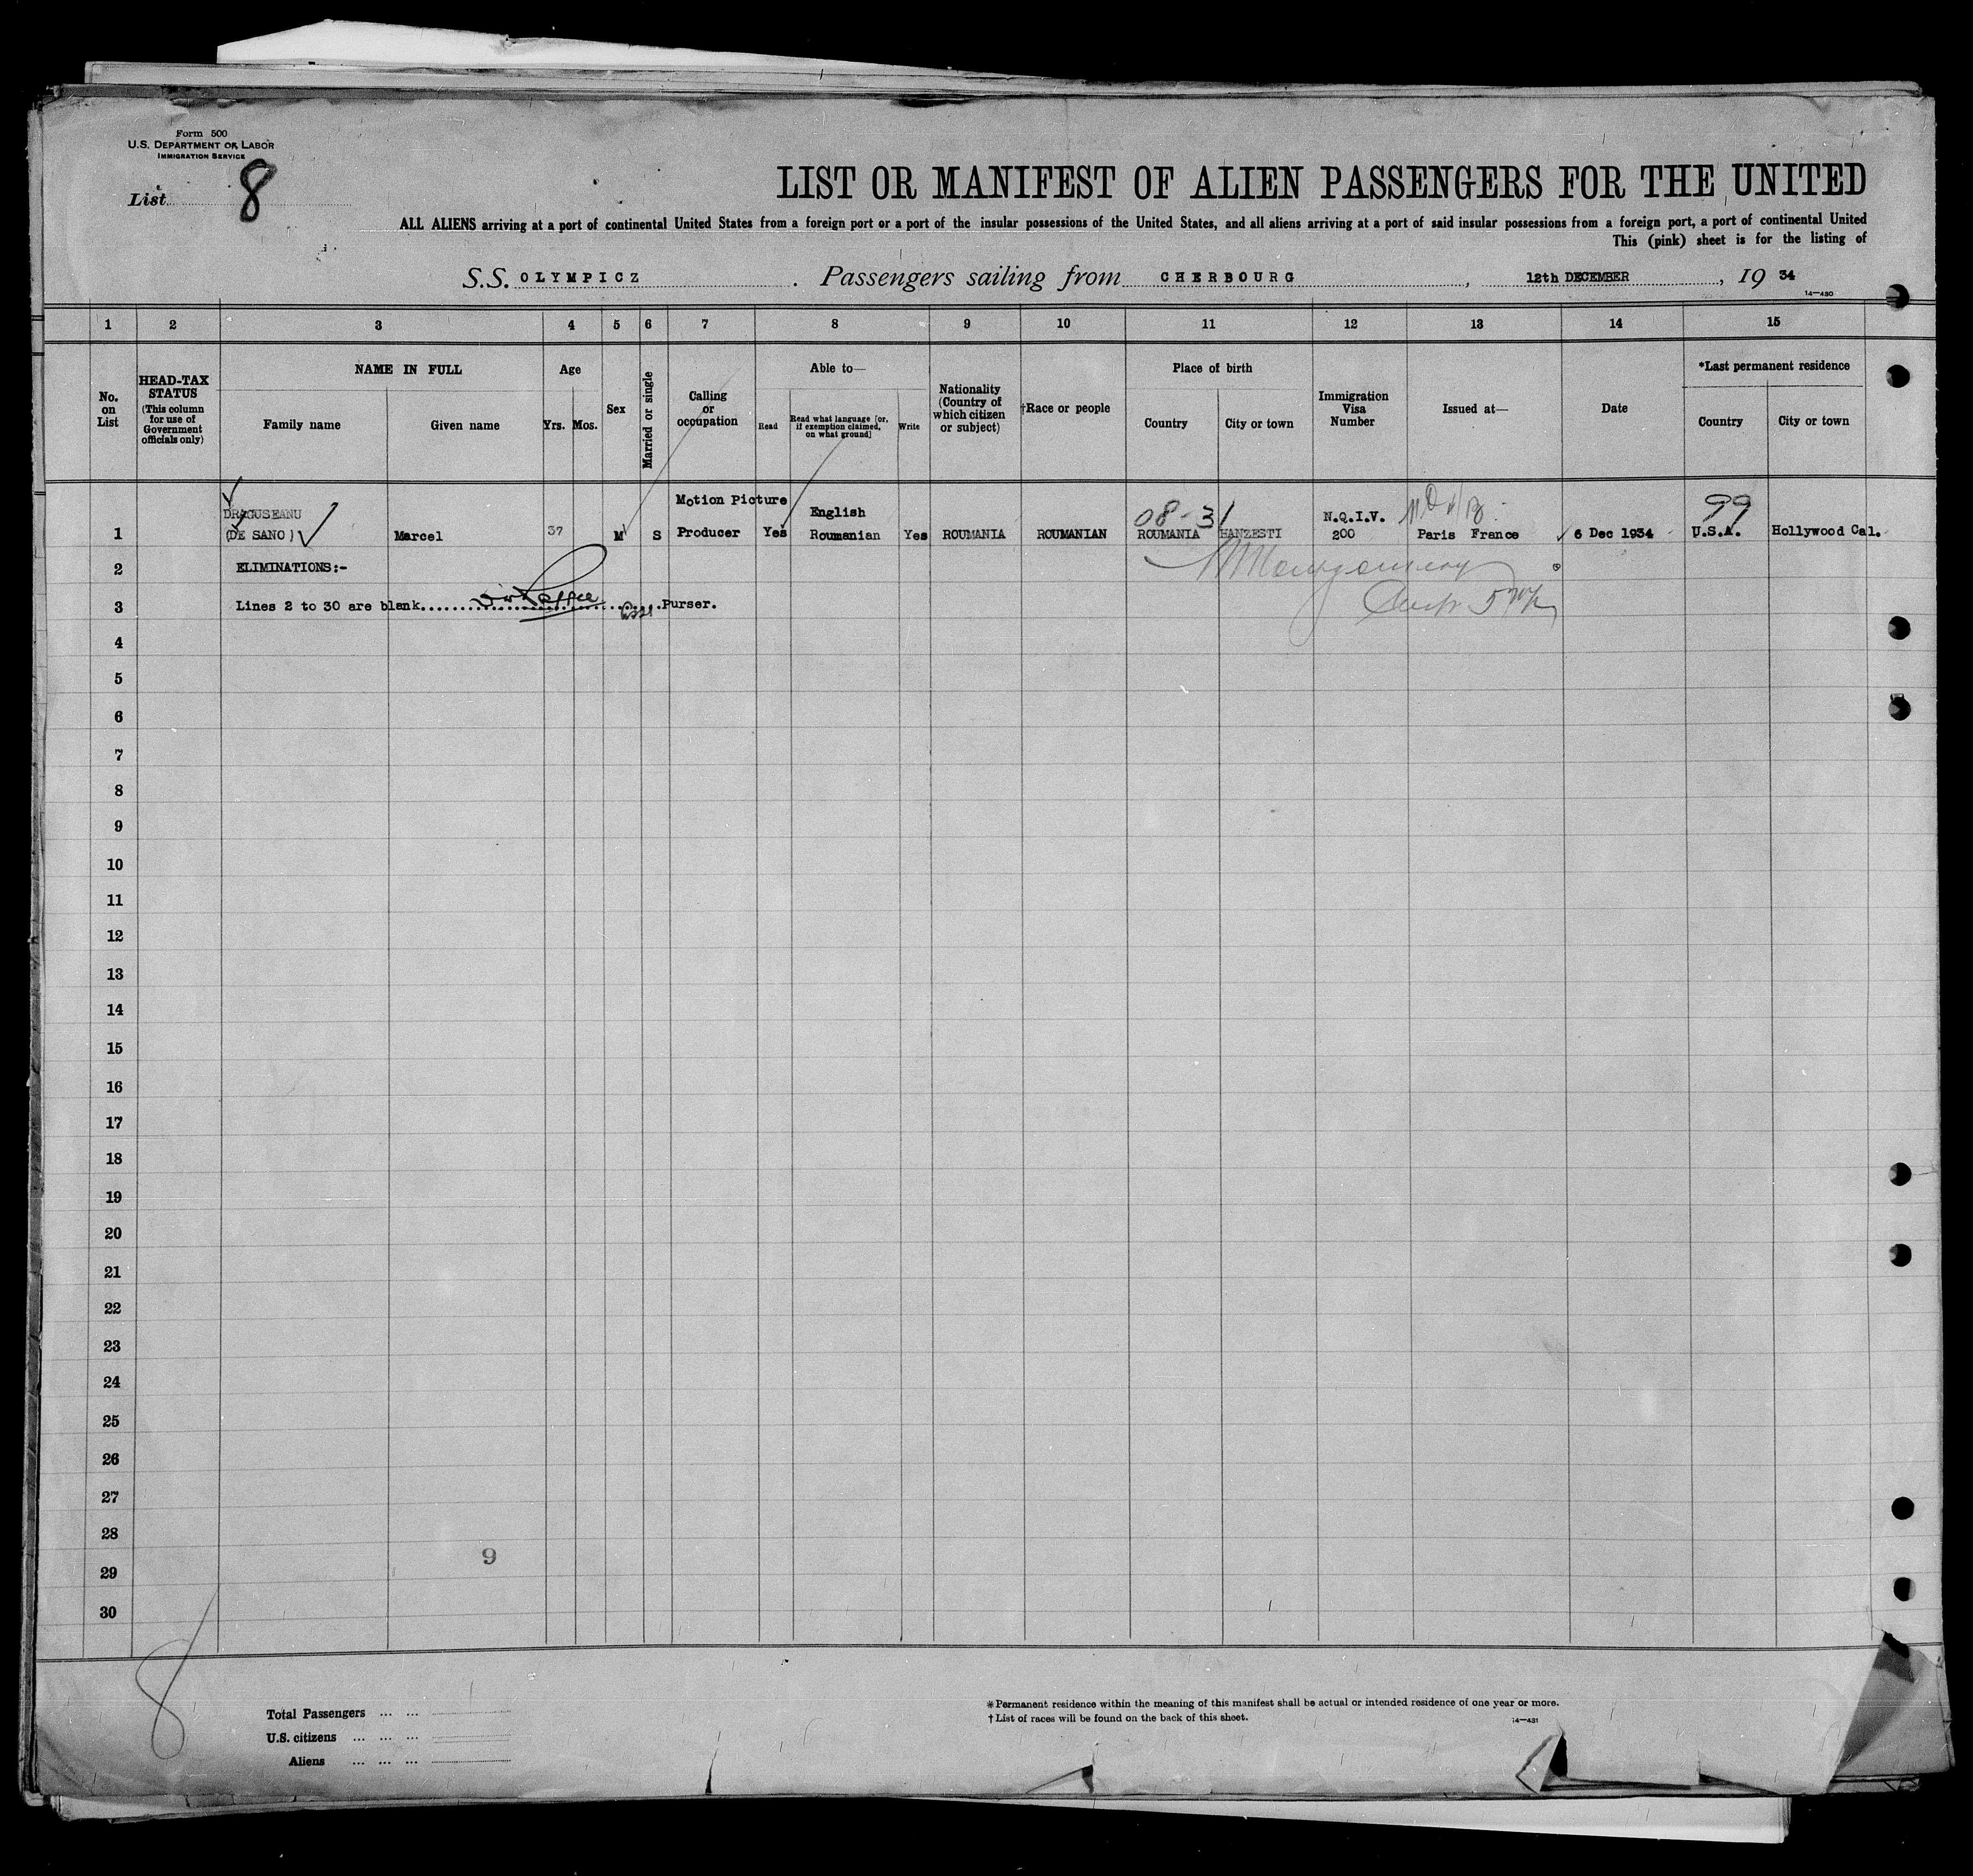 Form 500
U.S. DEPARTMENT OF LABOR
IMMIGRATION SERVICE
List 8
LIST OR MANIFEST OF ALIEN PASSENGERS FOR THE UNITED
ALL ALIENS arriving at a port of continental United States from a foreign port or a port of the insular possessions of the United States, and all aliens arriving at a port of said insular possessions from a foreign port, a port of continental United
This (pink) sheet is for the listing of
S.S. OLYMPICZ . Passengers sailing from CHERBOURG , 12th DECEMBER , 19 34
14—480
1 2 3 4 5 6 7 8 9 10 11 12 13 14 15
No. on List
HEAD-TAX STATUS (This column for use of Government officials only)
NAME IN FULL
Family name Given name
Age
Yrs. Mos.
Sex
Married or single
Calling or occupation
Able to—
Read Read what language [or, if exemption claimed, on what ground] Write
Nationality (Country of which citizen or subject)
†Race or people
Place of birth
Country City or town
Immigration Visa Number
Issued at—
Date
*Last permanent residence
Country City or town
DRAGUSEANU Motion Picture English 08-31 N.Q.I.V. 99
1 (DE SANO) Marcel 37 M S Producer Yes Roumanian Yes ROUMANIA ROUMANIAN ROUMANIA HANZESTI 200 Paris France 6 Dec 1934 U.S.A. Hollywood Cal.
2 ELIMINATIONS:-
3 Lines 2 to 30 are blank Purser.
4
5
6
7
8
9
10
11
12
13
14
15
16
17
18
19
20
21
22
23
24
25
26
27
28
9
29
30
8
Total Passengers ... ...
U.S. citizens ... ... ...
Aliens ... ... ...
*Permanent residence within the meaning of this manifest shall be actual or intended residence of one year or more.
†List of races will be found on the back of this sheet.
14—431